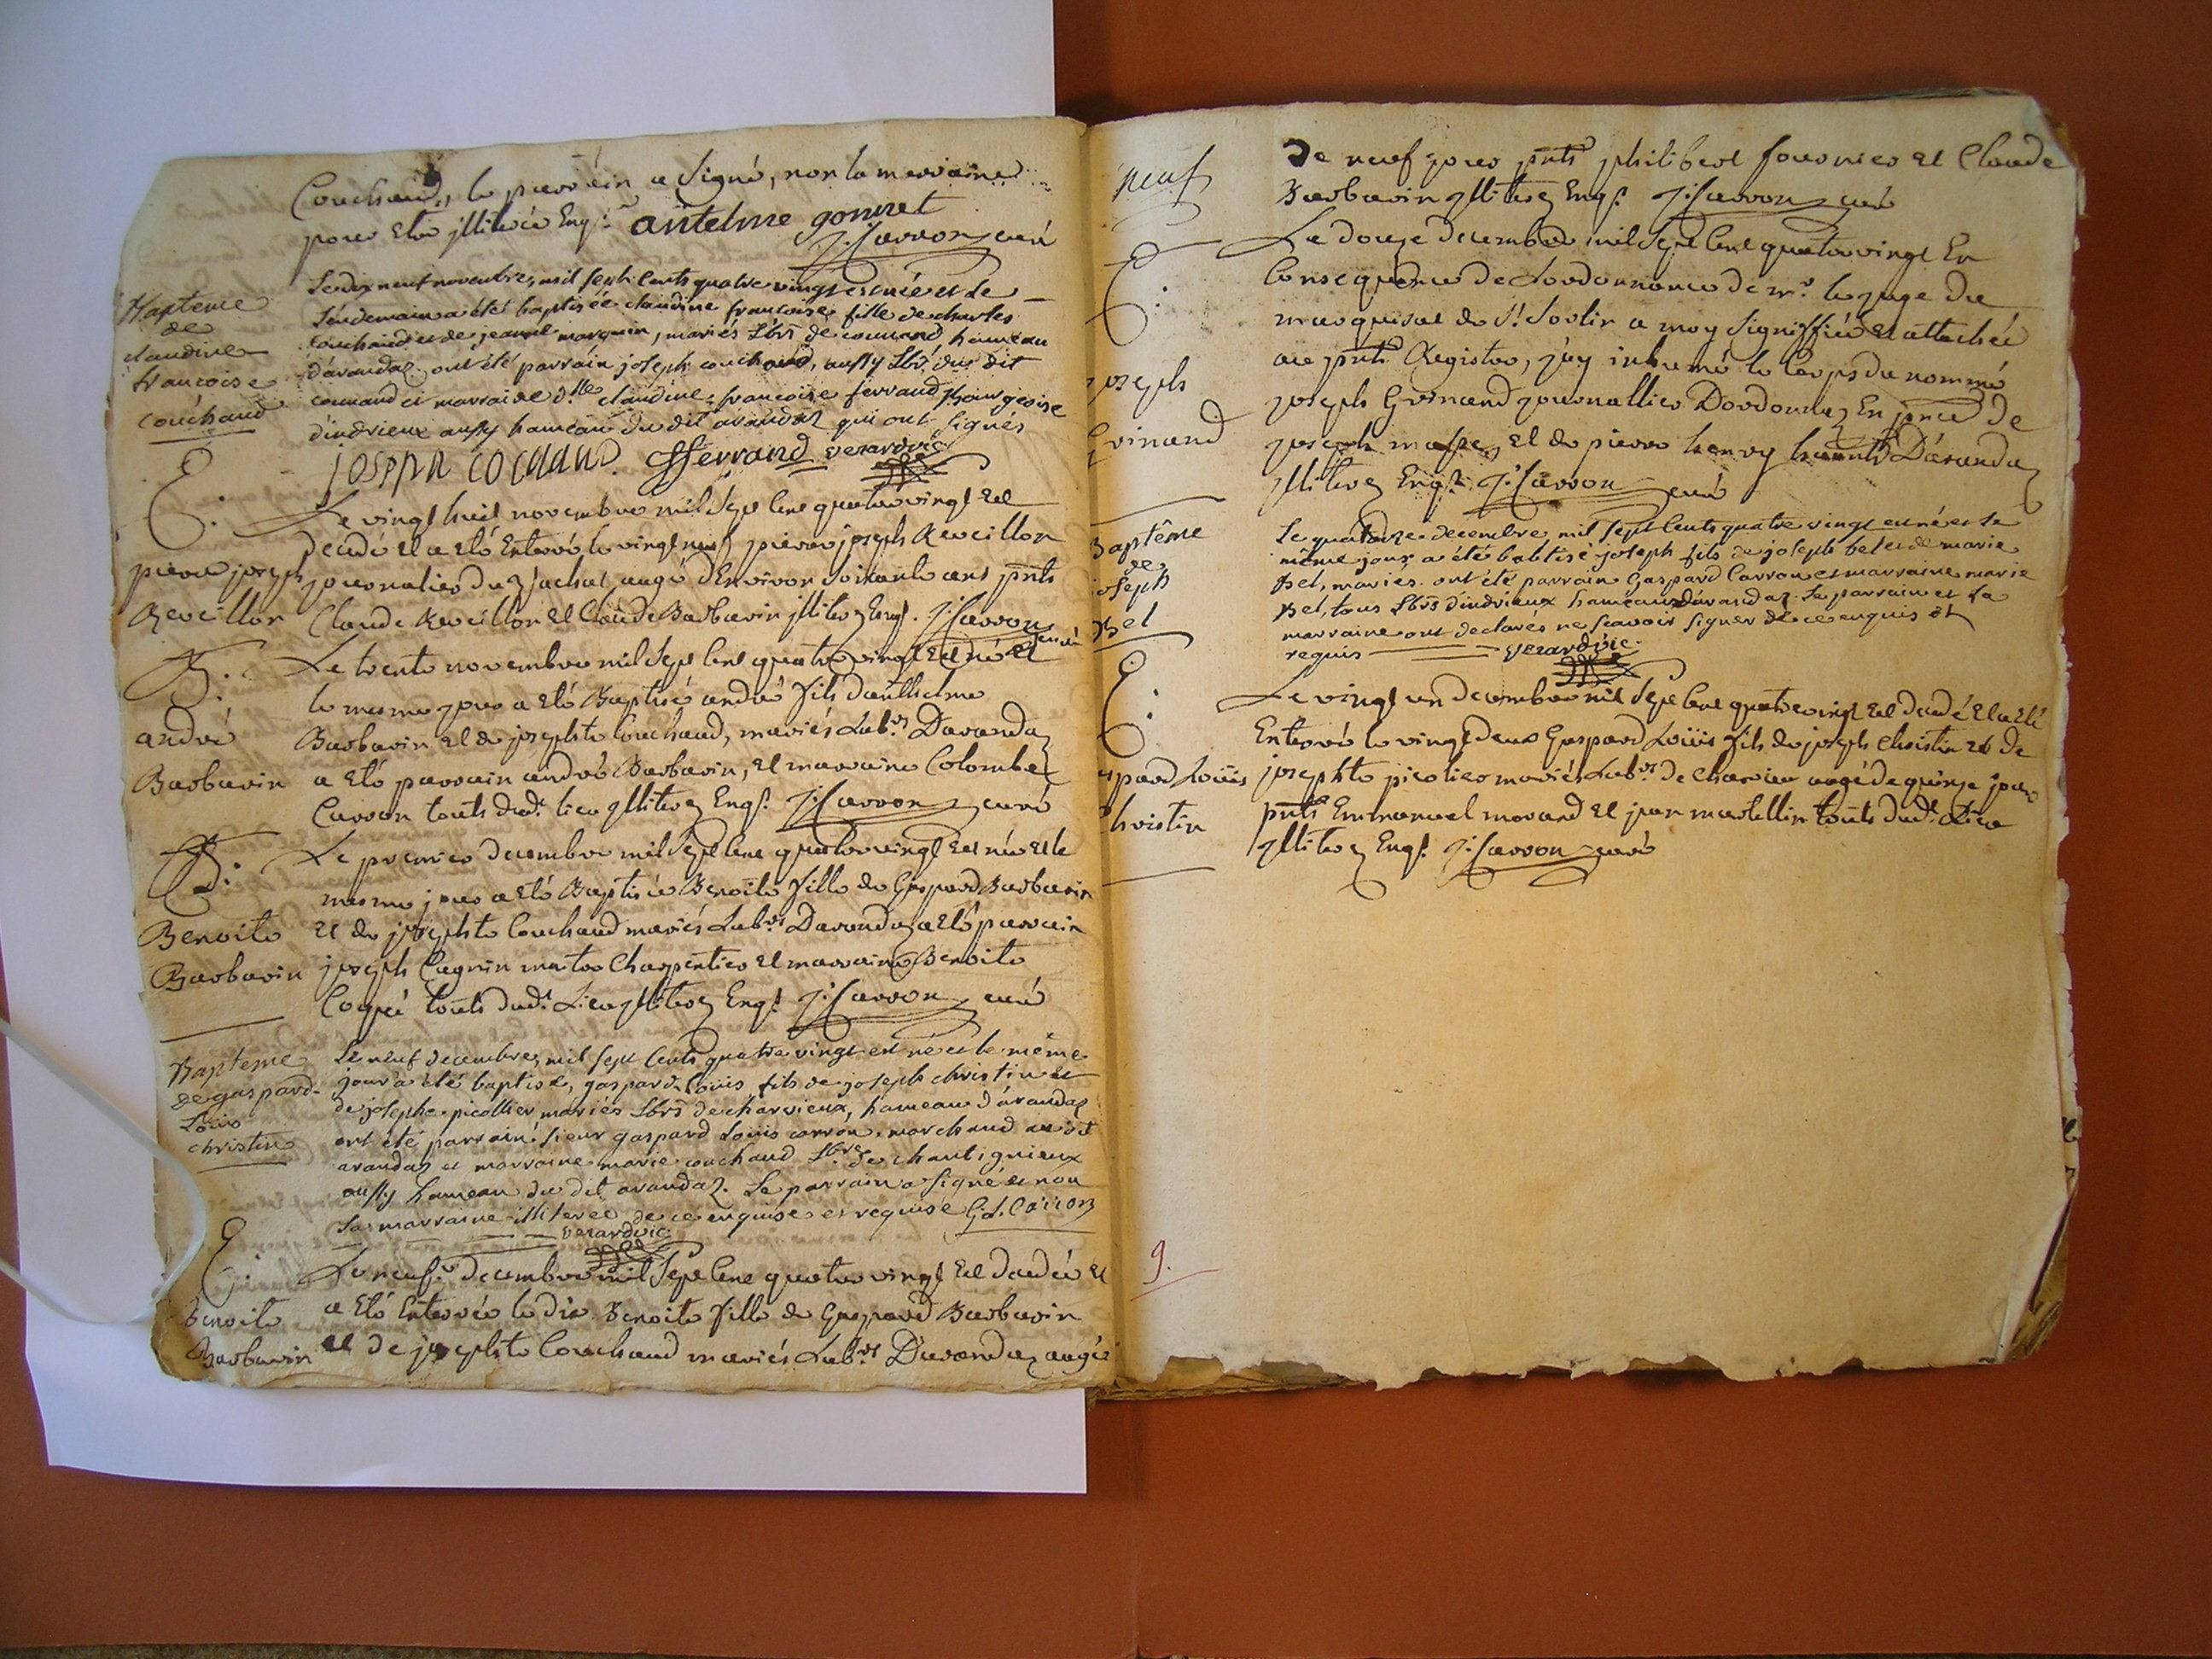 Couchaud, le parrain a signé, non la marraine
pour etre jlliterée Enqse antelme gonnet
J: Carron curé
Bapteme
de
claudine
francoise
couchaud
Le dix neuf novembre, mil sept cents quatre vingt est née et le
lendemain a été baptisée claudine francoise fille de charles
couchaud et de jeanne marquin, mariés Lbrs de coumand, hameau
d'arandaz. ont été parrain joseph couchaud, aussy Lbr. du dit
coumand et marraine dlle claudine francoise ferrand Bourgeoise
d'indrieux aussy hameau du dit arandaz qui ont signés
josepH COCHAUD Cfferrand verardvic
E:
pierre joseph
Reveillon
Le vingt huit novembre mil Sept Cent quatre vingt Est
decedé Et a Eté Enterré le vingt neuf pierre joseph Reveillon
journalier du
augé d'Environ soixante ans pnts
Claude Reveillon Et Claude Barbarin jllitrez Enqs. J: Carron
curé
B:
andré
Barbarin
Le trente novembre mil Sept Cent quatre vingt Est né Et
le mesme jour a Eté Baptisé andré fils d'anthelme
Barbarin Et de josephte Couchaud, mariés Labrs Darandaz
a Eté parrain andré Barbarin, Et marraine Colombe
Carron touts dudt lieu jllitrez Enqs. J: Carron curé
B:
Benoite
Barbarin
Le premier decembre mil Sept Cent quatre vingt Est née Et le
mesme jour a Eté Baptisée Benoite fille de Gaspard Barbarin
Et de josephte Couchaud mariés Labrs Darandaz a Eté parrain
joseph Cagnin maitre Charpentier Et marraine Benoite
touts dudt Lieu jllitrez Enqs. J: Carron curé
Bapteme
de gaspard
Loüis
christin
Le neuf decembre, mil sept cents quatre vingt est né et le même
jour a été baptisé, gaspard Loüis fils de joseph christin et
de josephe picollier mariés Lbrs de charvieux, hameau d'arandaz
ont été parrain sieur gaspard Loüis carron, marchand au dit
arandaz et marraine marie couchaud Lbre de chantignieux
aussy hameau du dit arandaz. Le parrain a signé et non
la marraine illiterée de ce enquise et requise Gd. Carron
verardvic
E:
Benoite
Barbarin
Le neuf decembre mil Sept Cent quatre vingt Est decedée Et
a Eté Enterrée le dix Benoite fille de Gaspard Barbarin
Et de josephte Couchaud mariés Labrs Darandaz augée
neuf
de neuf jours pnts philibert fournier et Claude
Barbarin jllitrez Enqs. J: Carron curé
E:
joseph
Grinand
Le douze decembre mil Sept Cent quatre vingt En
Consequence de Lordonnance de mr. le juge du
marquisat de St. Sorlin a moy signiffiée Et attachée
au pnt Registre, j'ay inhumé le Corps du nommé
joseph Grinand journallier Dordonnaz En pnce de
joseph maspez Et de pierre henry Darandaz
jllitrez Enqs. J: Carron curé
Baptême
de
joseph
Bel
Le quatorze decembre mil sept cents quatre vingt est né et le
même jour a été babtisé joseph fils de joseph bel et de marie
Bel, mariés. ont été parrain Gaspard Carron et marraine marie
Bel, tous Lbrs d'indrieux hameau d'arandaz. Le parrain et la
marraine ont declarés ne scavoir signer de ce enquis et
requis verardvic
E:
Gaspard Loüis
Christin
Le vingt un decembre mil Sept Cent quatre vingt Est decedé Et a Eté
Enterré le vingt deux Gaspard Loüis fils de joseph Christin Et de
josephte picolier mariés Labrs de Charvieu augé de quinze jours
pnts Emmanuel morand Et jean martellin touts dudt Lieu
jllitrez Enqs. J: Carron curé
9.